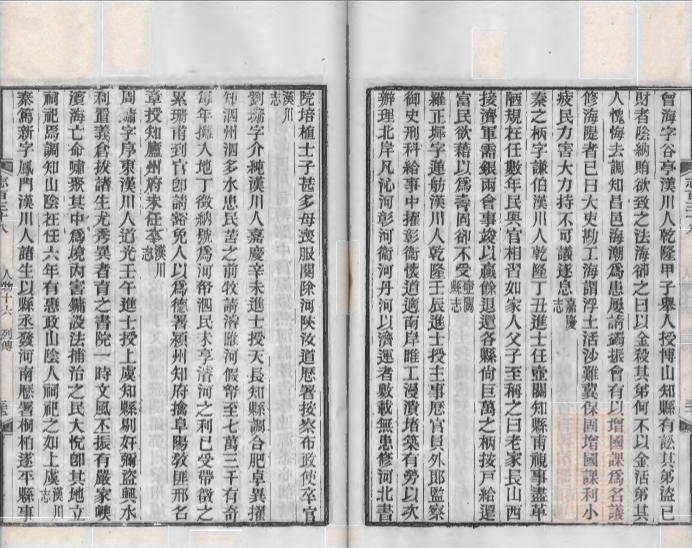 曾海字谷亭漢川人乾隆甲子舉人授博山知縣有訟其弟盜己
財者陰納賄欲致之法海卻之曰以金殺其弟何不以金活弟其
人愧悔去調知昌邑海潮爲患屢請蠲振會有以增國課爲名議
修海隄者已日大吏勘工海謂浮土活沙難冀保固增國課利小
疲民力害大力持不可議遂息嘉慶志
秦之柄字謙伯漢川人乾隆丁丑進士任壺關知縣甫視事盡革
陋規在任數年民與官相習如家人父子至稱之曰老家長山西
接濟軍需銀兩會事竣以羸餘退還各縣何巨萬之柄按戶給還
富民欲藉以爲壽固卻不受壺關縣志
羅正墀字蓮舫漢川人乾隆壬辰進士授主事歷官員外郎監察
御史刑科給事中擢彰衞懷道適南岸睢工漫潰堵築有勞以次
辦理北岸凡沁河彰河衞河丹河以濟運者數載無患修河北書
院培植士子甚多母喪服闋除河陝汝道歷署按察布政使卒官
漢川志
劉珊字介純漢川人嘉慶辛未進士授天長知縣調合肥卓異擢
知泗州泗多水患民苦之前牧請濬睢河假帑至七萬三千有奇
每年攤入地丁徵納號爲河帑泗民未享濬河之利已受帶徵之
累珊甫到官卽請豁免人以爲德署潁州知府擒阜陽敎匪邢名
章授知廬州府未任卒漢川志
周鏞字序東漢川人道光壬午進士授上虞知縣剔奸彌盜興水
利置義倉拔諸生尤秀異者育之書院一時文風丕振有嚴家㠗
濱海亡命嘯聚其中爲境內害鏞設法捕治之民大悅卽其地立
祠祀焉調知山陰在任六年有惠政山陰人祠祀之如上虞漢川志
秦篤新字鳳門漢川人諸生以縣丞發河南歷署桐柏遂平縣事
志百三十八 人物十六 列傳